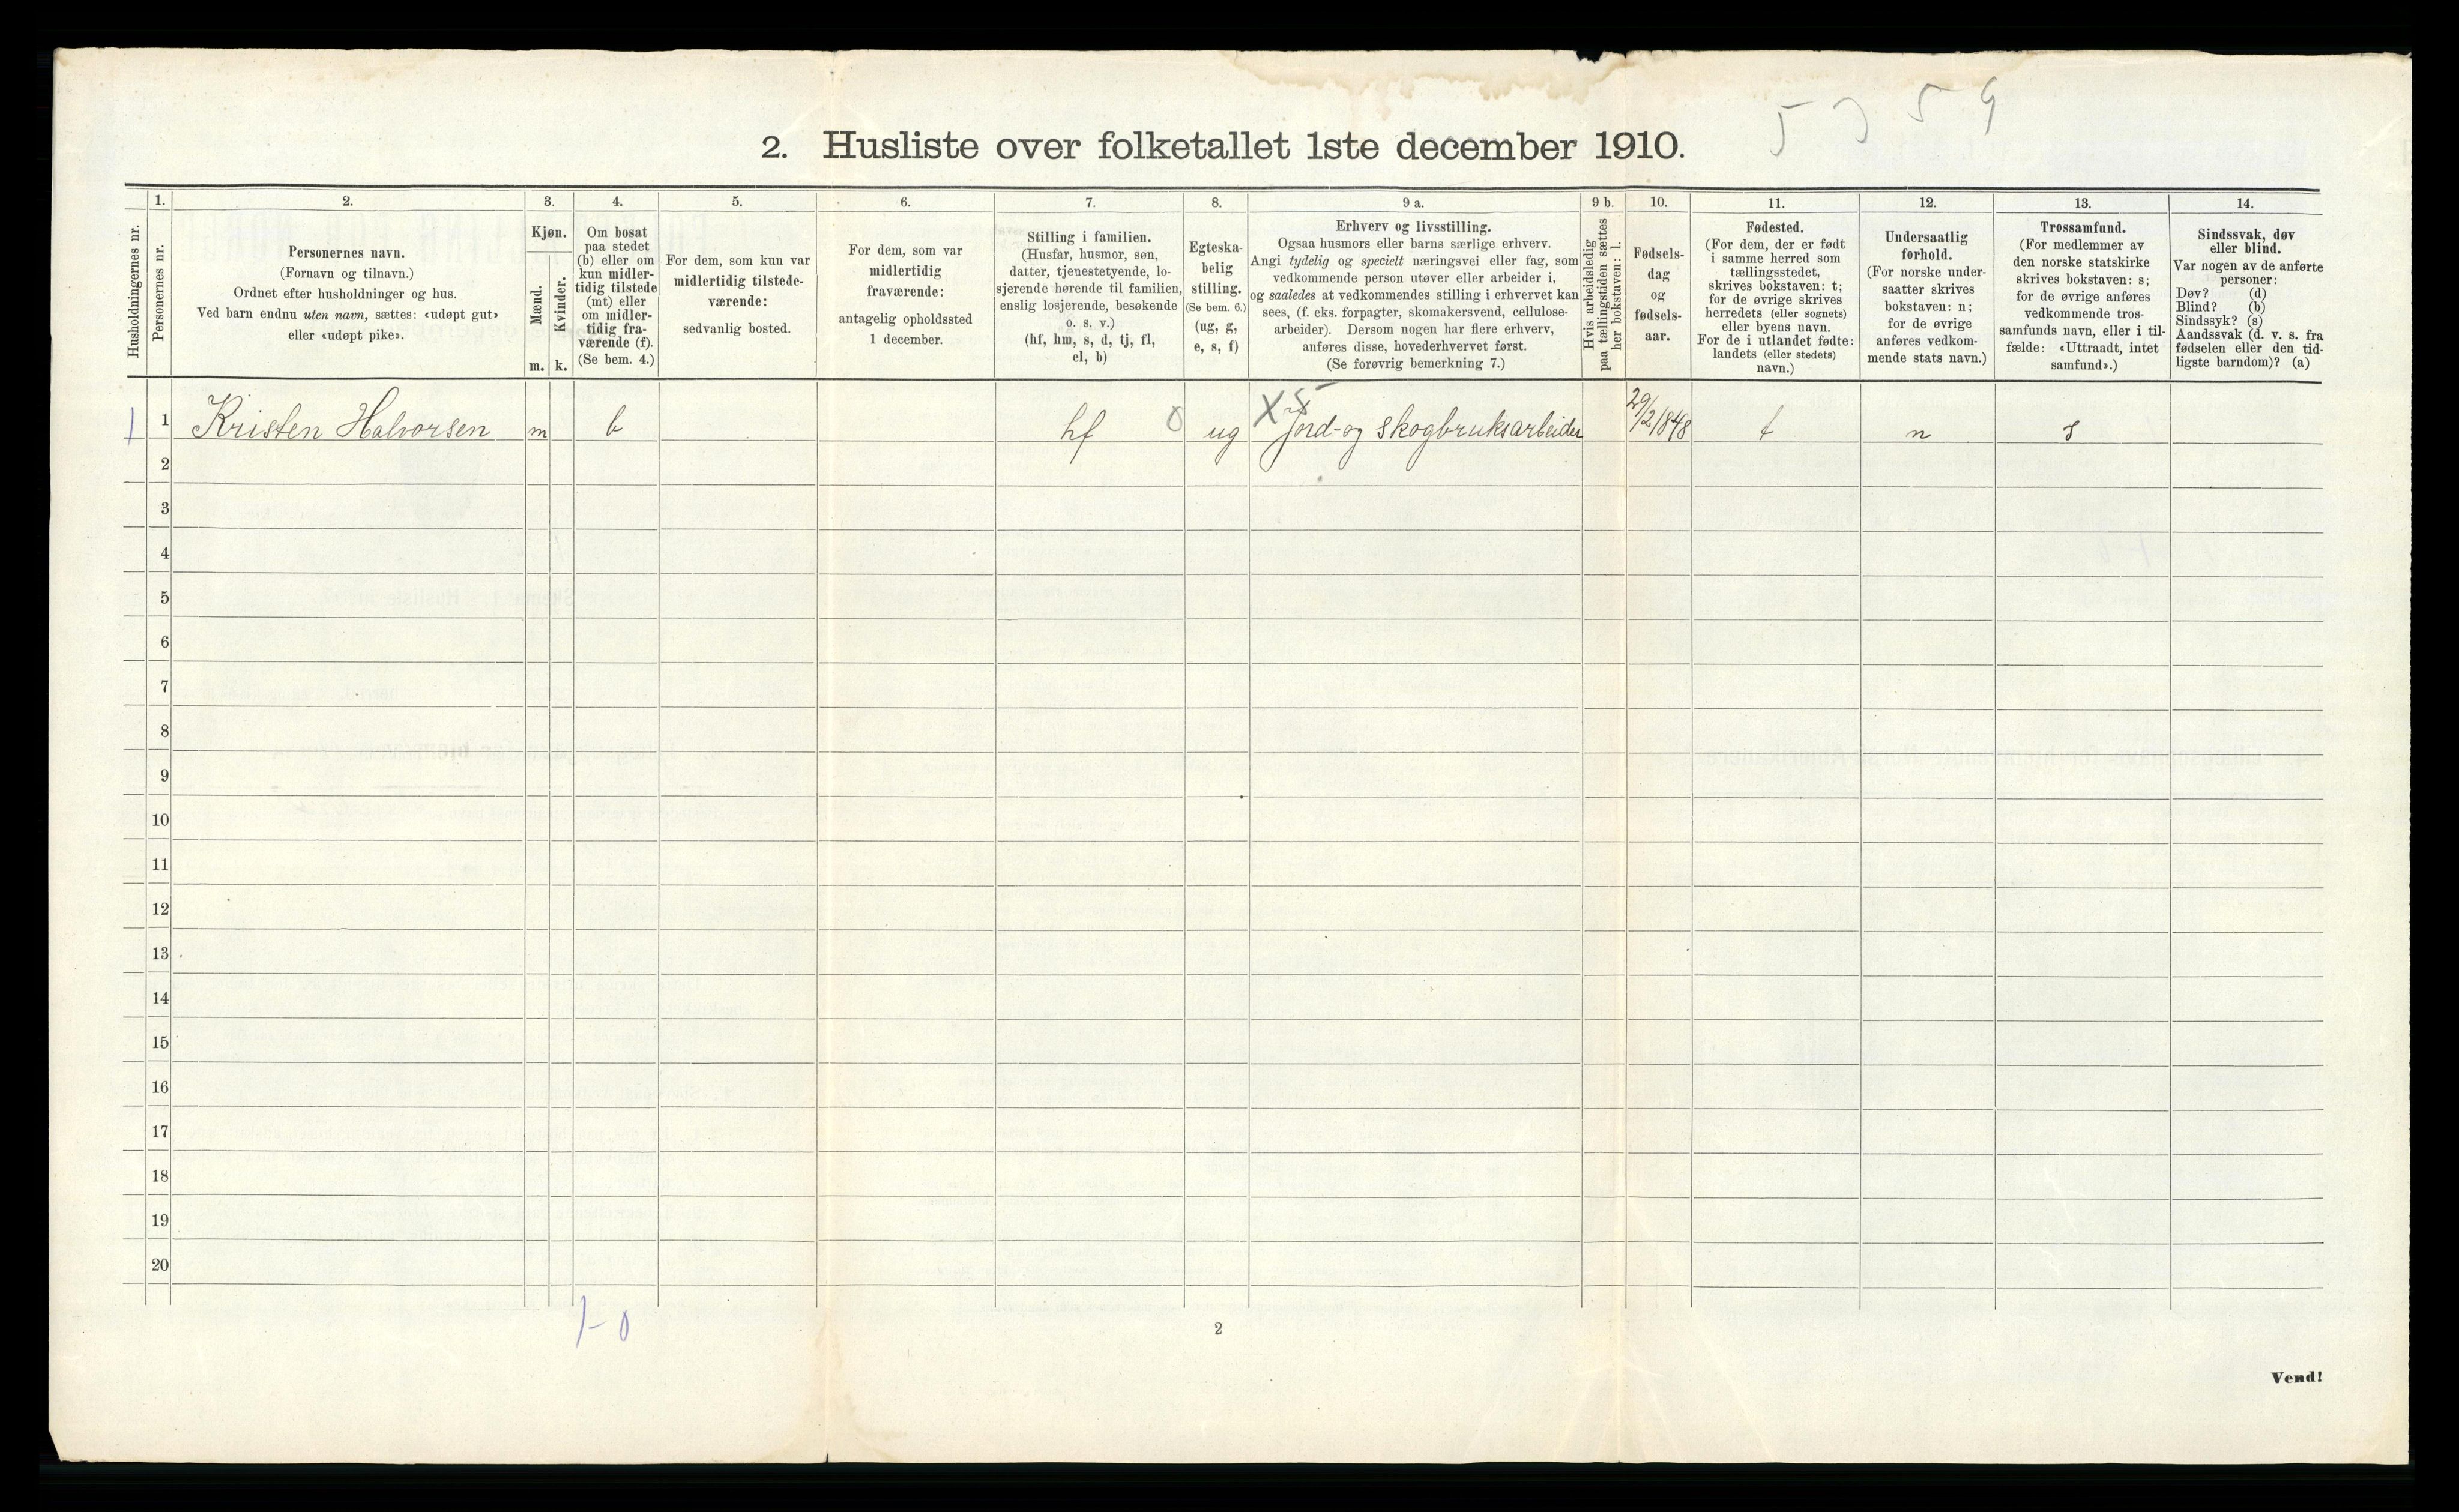 5 3 5 9
2. Husliste over folketallet 1ste december 1910.
1. 2. 3. 4. 5. 6. 7. 8. 9 a. 9 b. 10. 11. 12. 13. 14.
Husholdningernes nr.
Personernes nr.
Personernes navn.
(Fornavn og tilnavn.)
Ordnet efter husholdninger og hus.
Ved barn endnu uten navn, sættes: «udøpt gut»
eller «udøpt pike».
Kjøn.
Mænd.
Kvinder.
m. k.
Om bosat
paa stedet
(b) eller om
kun midler-
tidig tilstede
(mt) eller
om midler-
tidig fra-
værende (f).
(Se bem. 4.)
For dem, som kun var
midlertidig tilstede-
værende:
sedvanlig bosted.
For dem, som var
midlertidig
fraværende:
antagelig opholdssted
1 december.
Stilling i familien.
(Husfar, husmor, søn,
datter, tjenestetyende, lo-
sjerende hørende til familien,
enslig losjerende, besøkende
o. s. v.)
(hf, hm, s, d, tj, fl,
el, b)
Egteska-
belig
stilling.
(Se bem. 6.)
(ug, g,
e, s, f)
Erhverv og livsstilling.
Ogsaa husmors eller barns særlige erhverv.
Angi tydelig og specielt næringsvei eller fag, som
vedkommende person utøver eller arbeider i,
og saaledes at vedkommendes stilling i erhvervet kan
sees, (f. eks. forpagter, skomakersvend, cellulose-
arbeider). Dersom nogen har flere erhverv,
anføres disse, hovederhvervet først.
(Se forøvrig bemerkning 7.)
Hvis arbeidsledig
paa tællingstiden sættes
her bokstaven: l.
Fødsels-
dag
og
fødsels-
aar.
Fødested.
(For dem, der er født
i samme herred som
tællingsstedet,
skrives bokstaven: t;
for de øvrige skrives
herredets (eller sognets)
eller byens navn.
For de i utlandet fødte:
landets (eller stedets)
navn.)
Undersaatlig
forhold.
(For norske under-
saatter skrives
bokstaven: n;
for de øvrige
anføres vedkom-
mende stats navn.)
Trossamfund.
(For medlemmer av
den norske statskirke
skrives bokstaven: s;
for de øvrige anføres
vedkommende tros-
samfunds navn, eller i til-
fælde: «Uttraadt, intet
samfund».)
Sindssvak, døv
eller blind.
Var nogen av de anførte
personer:
Døv? (d)
Blind? (b)
Sindssyk? (s)
Aandssvak (d. v. s. fra
fødselen eller den tid-
ligste barndom)? (a)
1 1 Kristen Halvorsen m b hf 0 ug X 5 Jord- og skogbruksarbeider 29/2 1848 t n s
2
3
4
5
6
7
8
9
10
11
12
13
14
15
16
17
18
19
20
1-0
2
Vend!